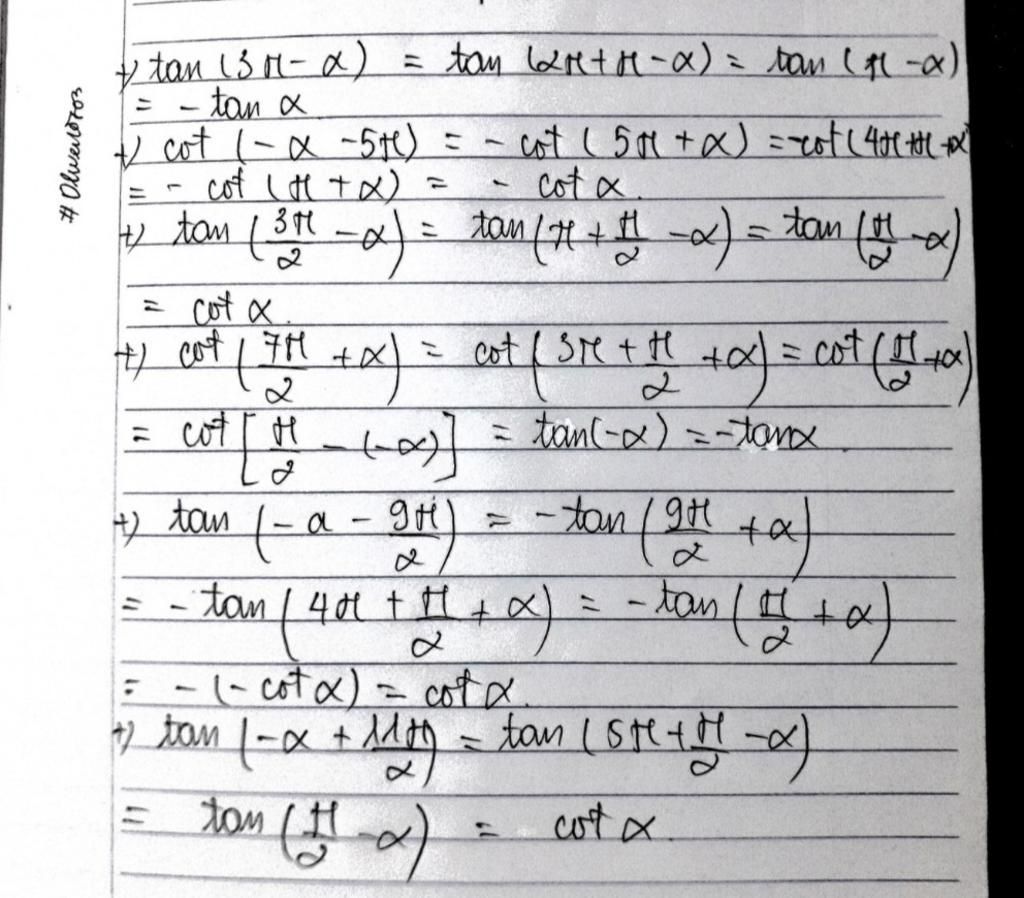 +) tan (3π - α) = tan (2π + π - α) = tan (π - α)
= - tan α
+) cot (-α - 5π) = - cot (5π + α) = -cot (4π + π + α
= - cot (π + α) = - cot α.
+) tan (3π/2 - α) = tan (π + π/2 - α) = tan (π/2 - α)
= cot α.
+) cot (7π/2 + α) = cot (3π + π/2 + α) = cot (π/2 + α)
= cot [π/2 - (-α)] = tan(-α) = -tanα
+) tan (-α - 9π/2) = -tan (9π/2 + α)
= - tan (4π + π/2 + α) = - tan (π/2 + α)
= - (- cot α) = cot α.
+) tan (-α + 11π/2) = tan (5π + π/2 - α)
= tan (π/2 - α) = cot α.